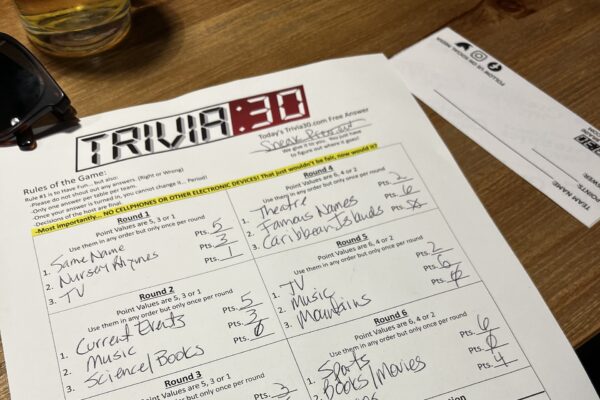 TRIVIA:30
Today's Trivia30.com Free Answer
Sneak Preview
We give it to you. You just have
to figure out where it goes!
Rules of the Game:
Rule #1 is to Have Fun... but also:
-Please do not shout out any answers. (Right or Wrong)
-Only one answer per table per team.
-Once your answer is turned in, you cannot change it... Period!
-Decisions of the host are final.
-Most importantly... NO CELLPHONES OR OTHER ELECTRONIC DEVICES! That just wouldn't be fair, now would it?
Round 1
Point Values are 5, 3 or 1
Use them in any order but only once per round
1. Same Name Pts. 5
2. Nursery Rhymes Pts. 3
3. TV Pts. 1
Round 2
Point Values are 5, 3 or 1
Use them in any order but only once per round
1. Current Events Pts. 5
2. Music Pts. 3
3. Science/Books Pts.
Round 3
Point Values are 5, 3 or 1
Use them in any order but only once per round
Pts.
Round 4
Point Values are 6, 4 or 2
Use them in any order but only once per round
1. Theatre Pts. 2
2. Famous Names Pts. 6
3. Caribbean Islands Pts.
Round 5
Point Values are 6, 4 or 2
Use them in any order but only once per round
1. TV Pts. 2
2. Music Pts. 6
3. Mountains Pts.
Round 6
Point Values are 6, 4 or 2
Use them in any order but only once per round
1. Sports Pts. 6
2. Books/Movies Pts.
Pts. 4
FOLLOW US ON SOCIAL MEDIA
TEAM NAME: